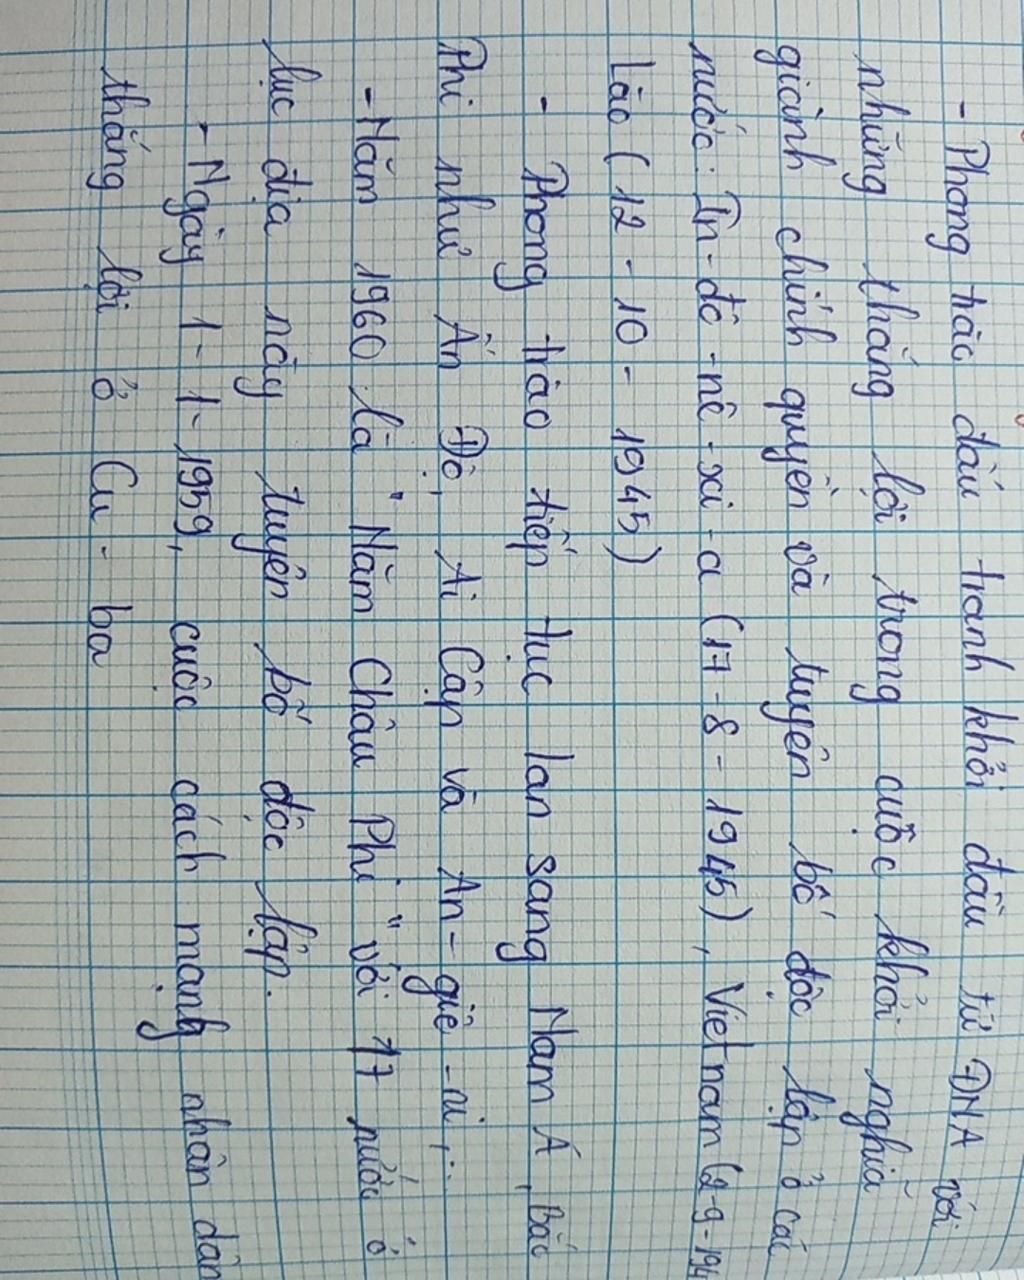 - Phong trào đấu tranh khởi đầu từ ĐNA với
những thắng lợi trong cuộc khởi nghĩa
giành chính quyền và tuyên bố độc lập ở các
nước: In-đô-nê-xi-a (17-8-1945), Việt nam (2-9-194
Lào (12-10-1945)
- Phong trào tiếp tục lan sang Nam Á, Bắc
Phi như Ấn Độ, Ai Cập và An-giê-ri,...
- Năm 1960 là "Năm Châu Phi" với 17 nước ở
lục địa này tuyên bố độc lập.
- Ngày 1-1-1959, cuộc cách mạng nhân dân
thắng lợi ở Cu-ba